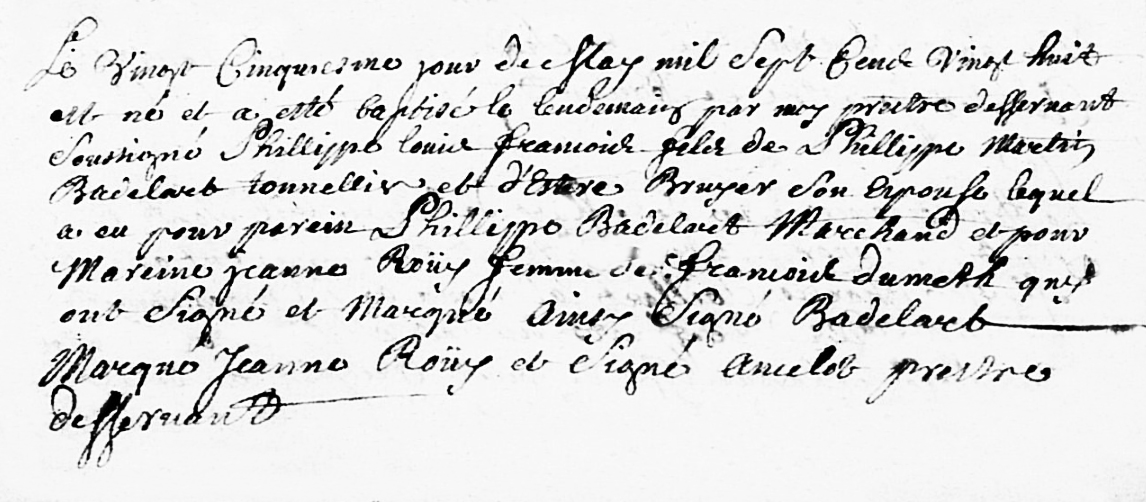 Le Vingt Cinquiesme jour de May mil Sept Cent Vingt huit
est né et a esté baptisé le lendemain par moy prestre desservant
Soussigné Phillippe louis francois fils de Phillippe Martin
Badelart tonnellier et d'Estere Bruyer Son Epouse lequel
a eu pour parein Phillippe Badelart Marchand et pour
Mareine jeanne Roüy femme de francois dumeth quy
ont Signé et Marqué Ainsy Signé Badelart
Marque Jeanne Roüy et Signé Amelot prestre
desservant